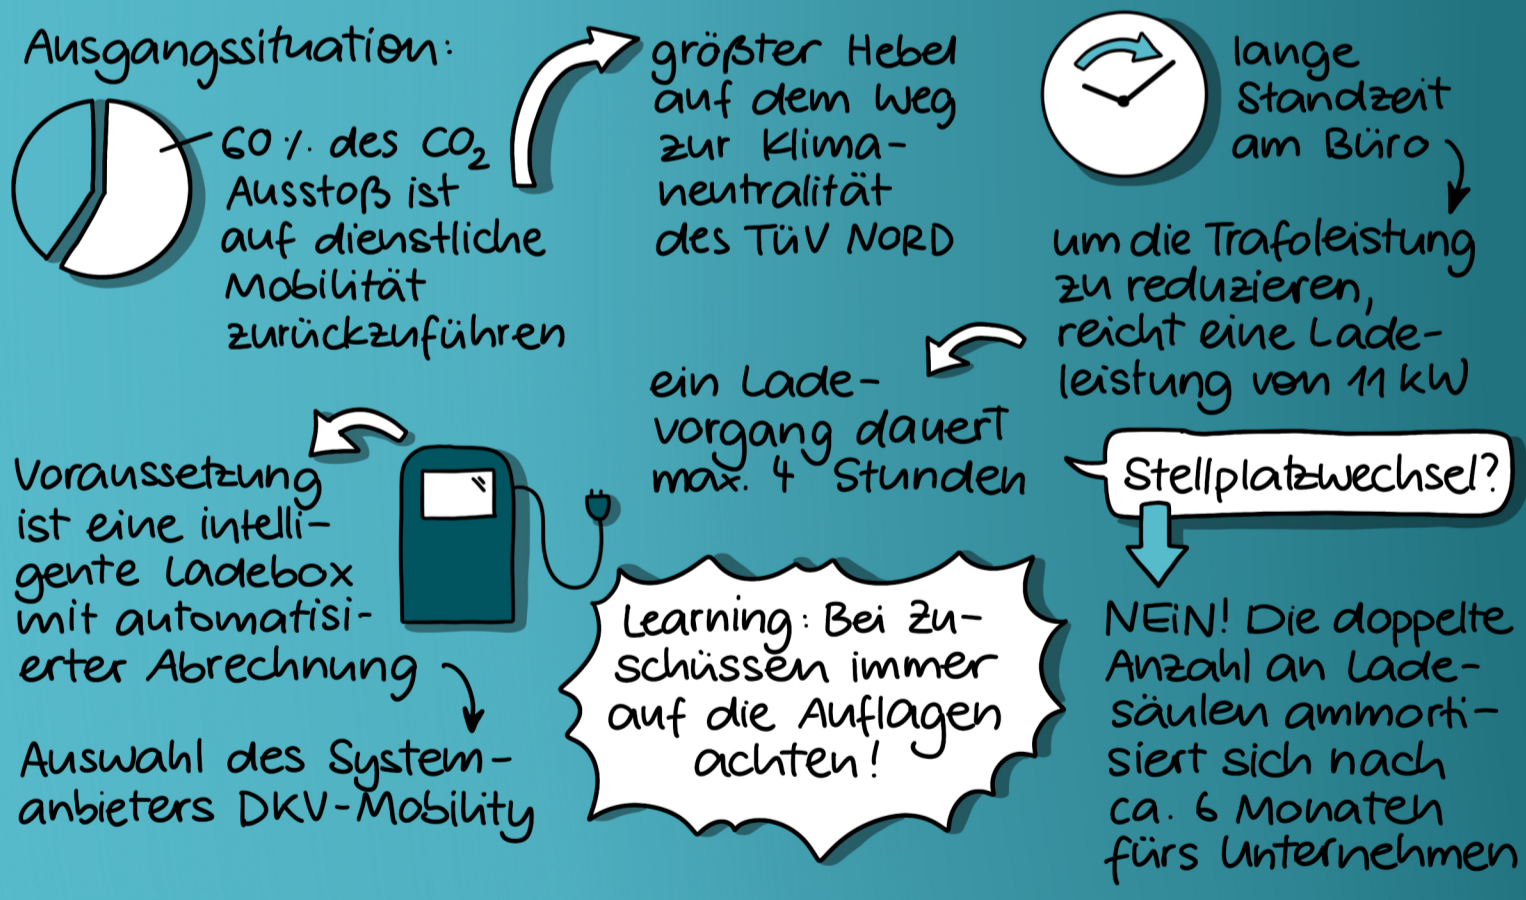 Ausgangssituation:
60 % des CO₂
Ausstoß ist
auf dienstliche
Mobilität
zurückzuführen
größter Hebel
auf dem Weg
zur Klima-
neutralität
des TÜV NORD
lange
Standzeit
am Büro
um die Trafoleistung
zu reduzieren,
reicht eine Lade-
leistung von 11 kW
ein Lade-
vorgang dauert
max. 4 Stunden
Stellplatzwechsel?
NEIN! Die doppelte
Anzahl an Lade-
säulen ammorti-
siert sich nach
ca. 6 Monaten
fürs Unternehmen
Voraussetzung
ist eine intelli-
gente Ladebox
mit automatisi-
erter Abrechnung
Auswahl des System-
anbieters DKV-Mobility
Learning: Bei Zu-
schüssen immer
auf die Auflagen
achten!